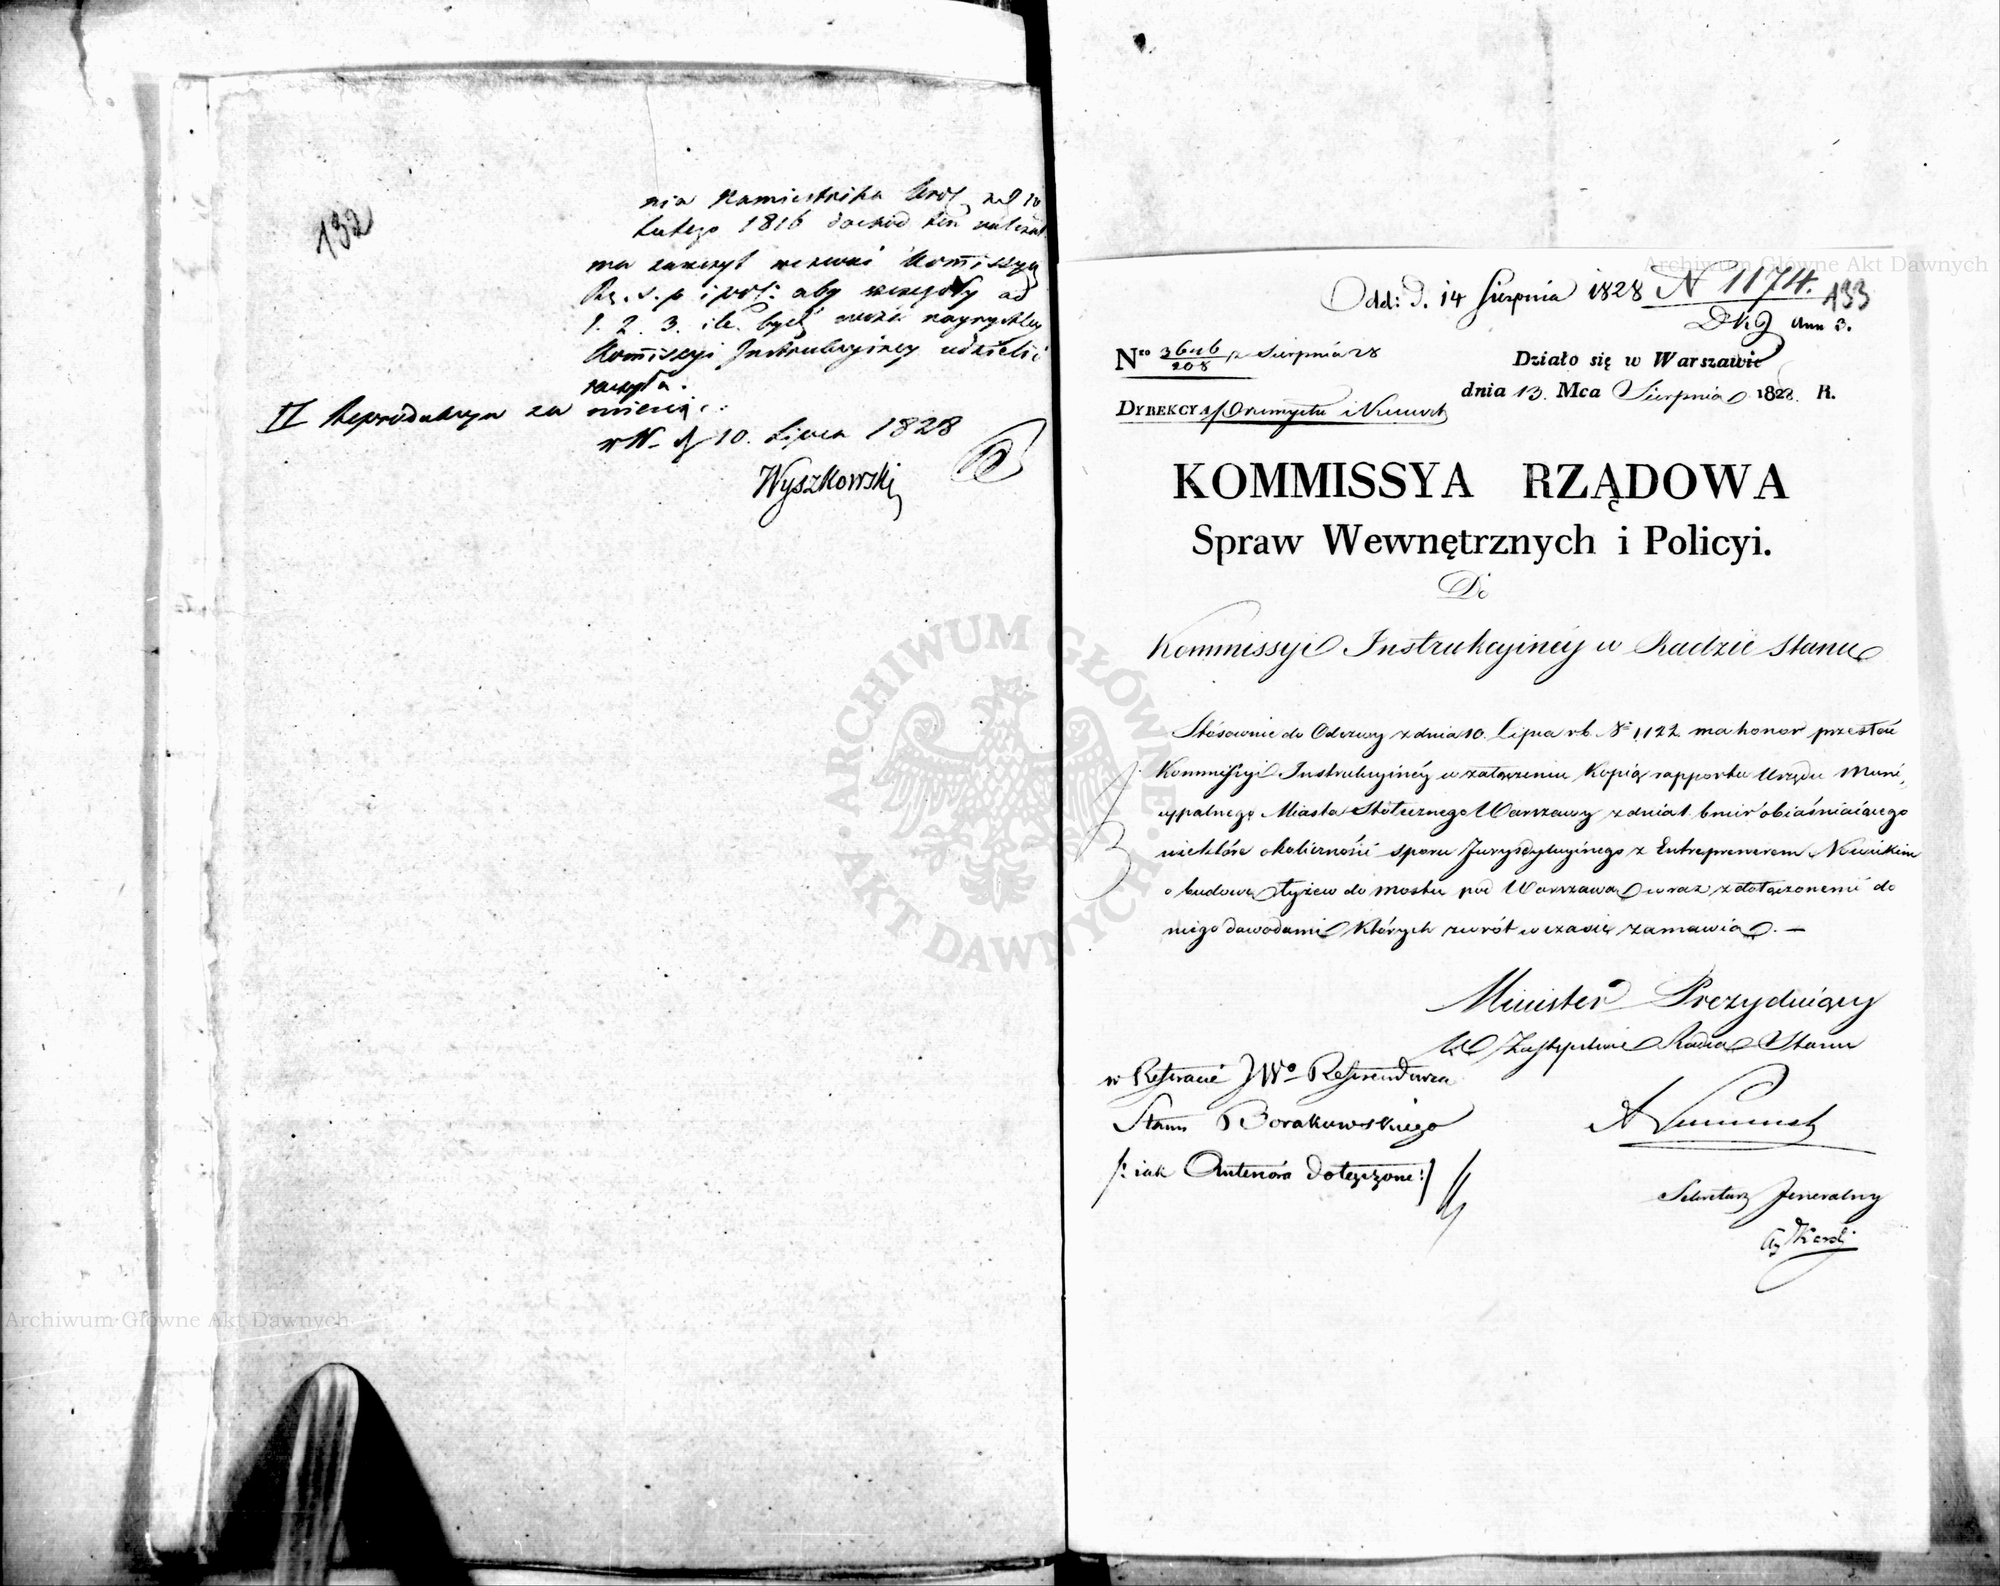 132
nia Namiestnika Król z d 10
Lutego 1816 dochód ten należał
ma zaszczyt wezwać Kommissyą
Rz. S. p i pol: aby szczegóły ad
1. 2. 3. ile być może nayrychley
Kommissyi Instrukcyiney udzielić
raczyła.
II Reprodukcya za miesiąc
w W. d 10. Lipca 1828
Wyszkowski
Odd: d. 14 Sierpnia 1828 N 1174.
133
DKJ Ann 3.
Nro 3646/208 z Sierpnia 28
Działo się w Warszawie
dnia 13. Mca Sierpnia 1828. R.
DYREKCYA Przemysłu i Kunszt
KOMMISSYA RZĄDOWA
Spraw Wewnętrznych i Policyi.
Do
Kommissyi Instrukcyinéy w Radzie Stanu
Stósownie do Odezwy z dnia 10. Lipca r b. No 1122 ma honor przesłać
Kommissyi Instrukcyinéy w załączeniu Kopią rapportu Urzędu Muni,
cypalnego Miasta Stółecznego Warszawy z dnia 1. b m i r obiaśniaiącego
niektóre okoliczności sporu Jurysdykcyinego z Entreprenerem Nowickim
o budowę łyżew do mostu pod Warszawą wraz z dołączonemi do
niego dowodami których zwrót w czasie zamawia. —
Minister Prezyduiący
W Zastępstwie Radca Stanu
w Referacie JWo Referendarza
Stanu Borakowskiego
/: iak Anteriora dołączone :/
Sekretarz Jeneralny
ARCHIWUM GŁÓWNE AKT DAWNYCH
Archiwum Główne Akt Dawnych
Archiwum Główne Akt Dawnych